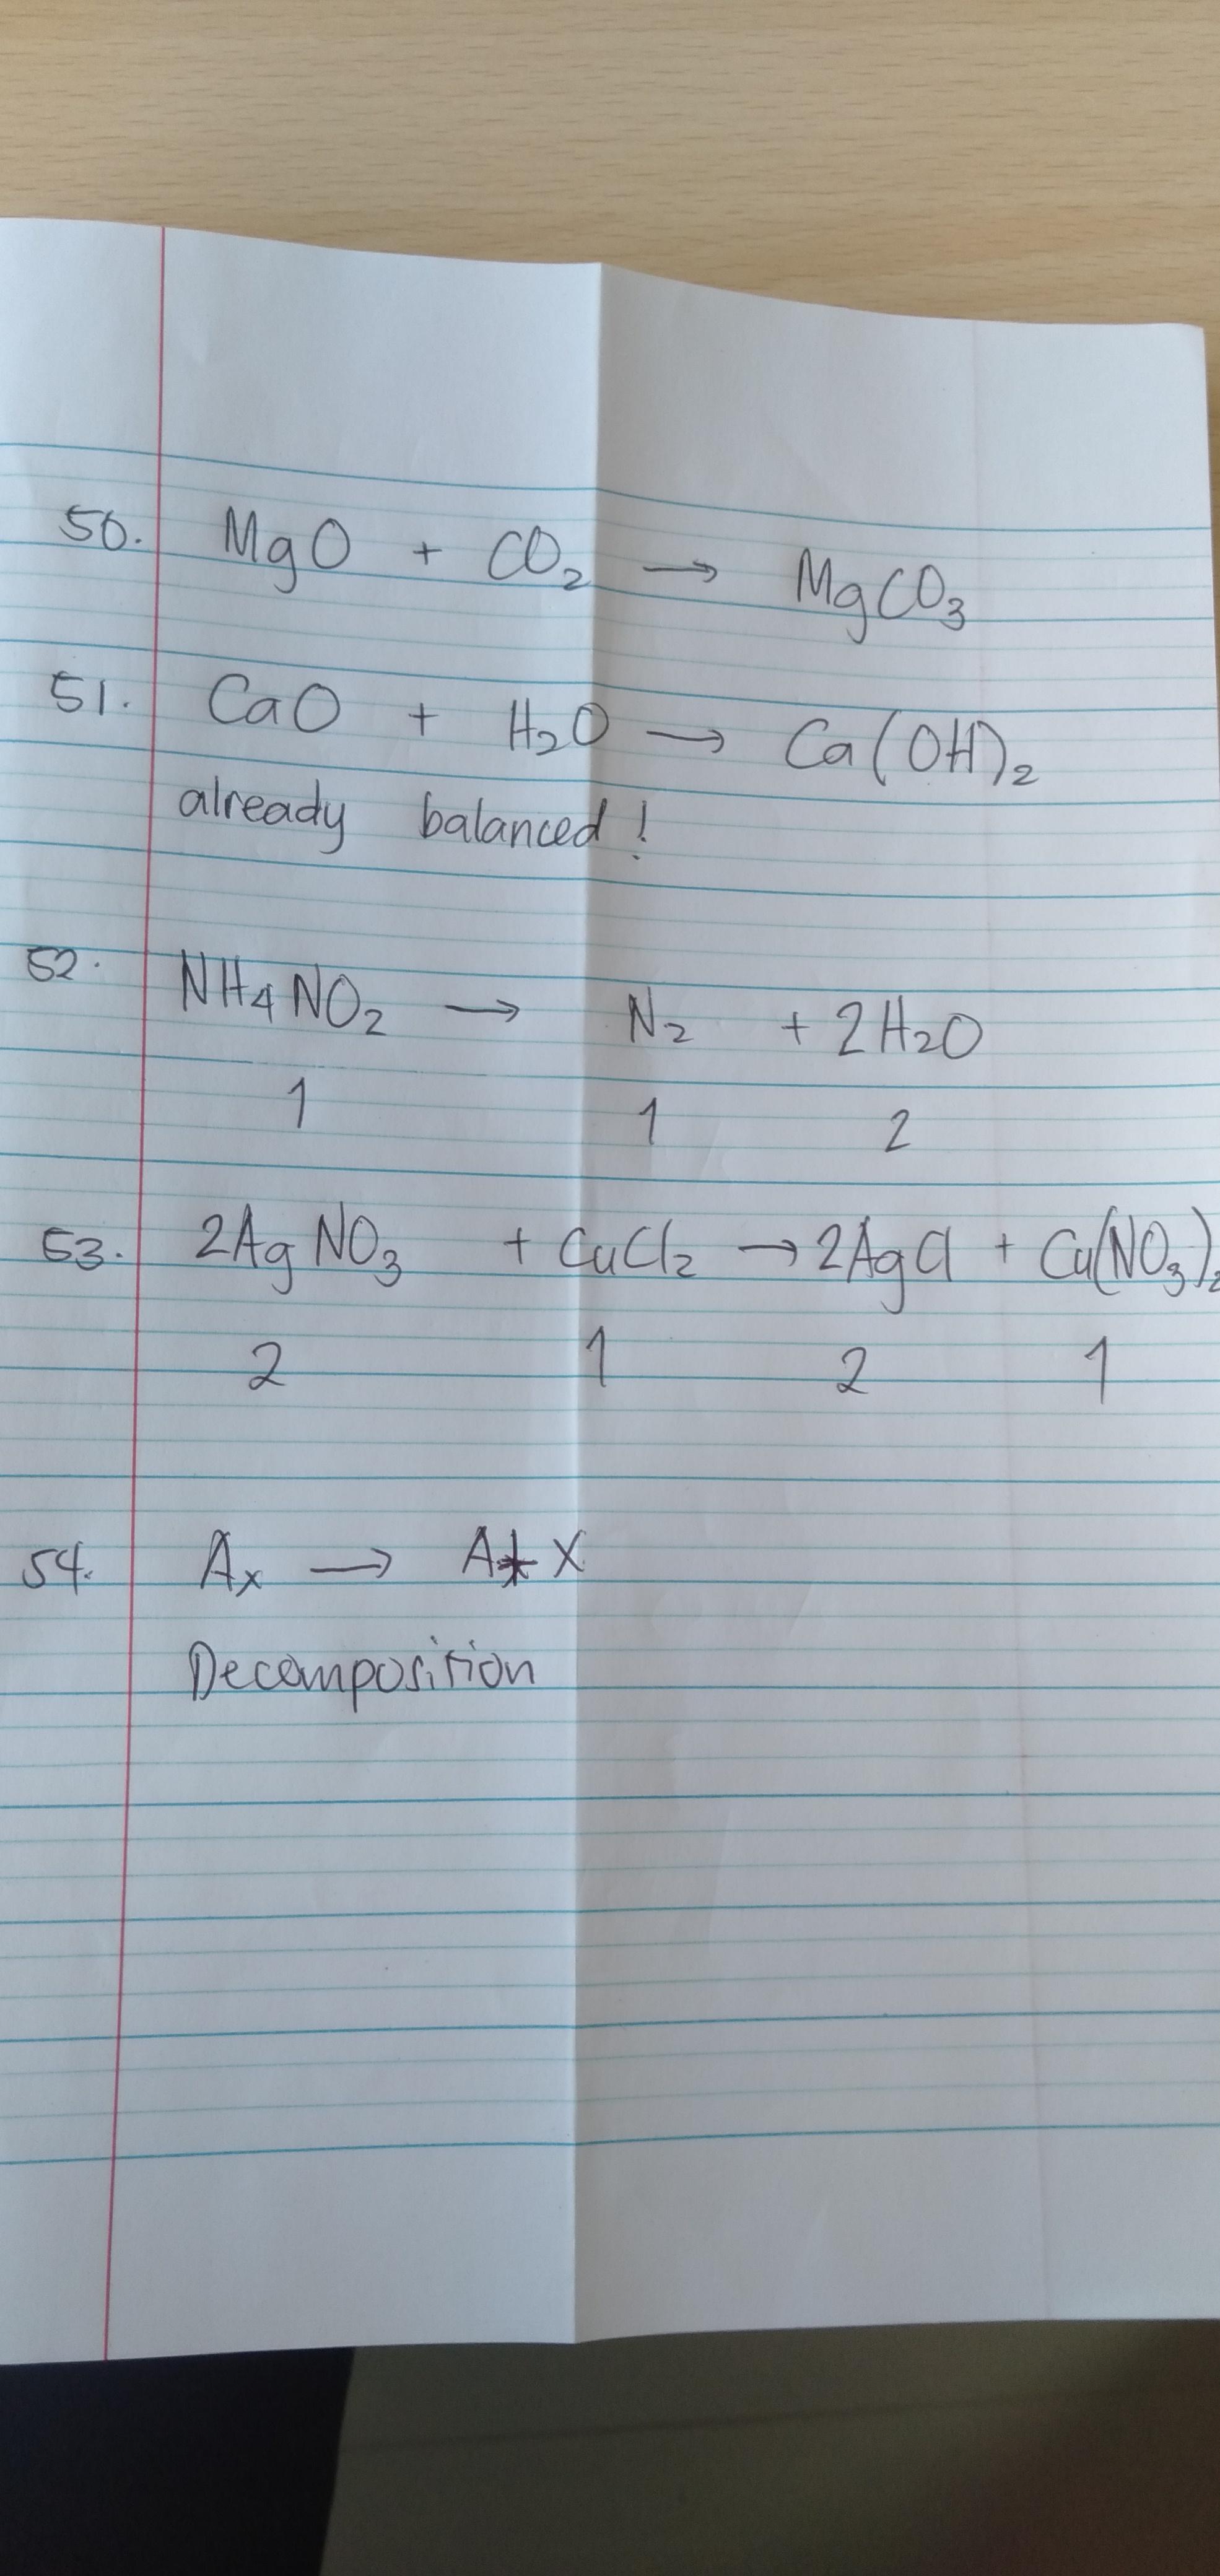 50. MgO + CO₂ → MgCO₃
51. CaO + H₂O → Ca(OH)₂
already balanced!
52. NH₄NO₂ → N₂ + 2H₂O
1 1 2
53. 2AgNO₃ + CuCl₂ → 2AgCl + Cu(NO₃)₂
2 1 2 1
54. Aₓ → A + X
Decomposition